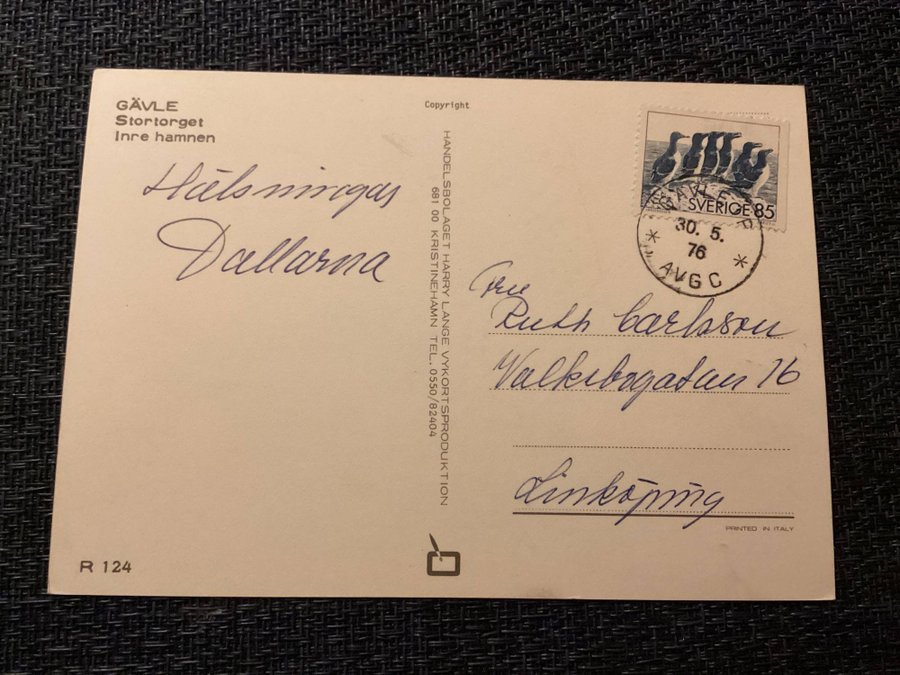 GÄVLE
Stortorget
Inre hamnen
Hälsningar
Dallarna
R 124
Copyright
HANDELSBOLAGET HARRY LANGE VYKORTSPRODUKTION
681 00 KRISTINEHAMN TEL. 0550/82404
SVERIGE 85
GÄVLE
30. 5.
76
* AVG C *
Fru
Ruth Carlsson
Valkebogatan 16
Linköping
PRINTED IN ITALY